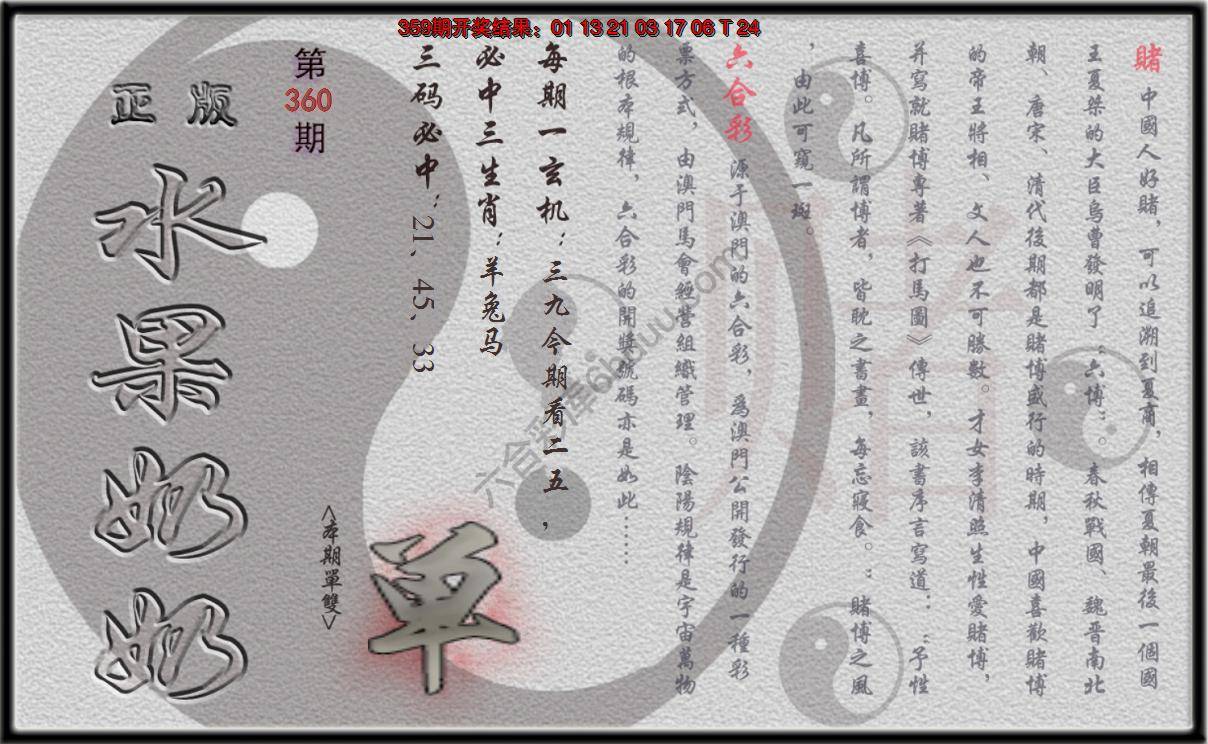 359期开奖结果：01 13 21 03 17 06 T 24
賭 中國人好賭，可以追溯到夏商，相傳夏朝最後一個國
王夏桀的大臣烏曹發明了“六博”。春秋戰國、魏晋南北
朝、唐宋、清代後期都是賭博盛行的時期，中國喜歡賭博
的帝王將相、文人也不可勝數。才女李清照生性愛賭博，
并寫就賭博專著《打馬圖》傳世，該書序言寫道：“予性
喜博。凡所謂博者，皆耽之書畫，每忘寢食。：賭博之風
，由此可窺一斑。
六合彩 源于澳門的六合彩，爲澳門公開發行的一種彩
票方式，由澳門馬會經營組織管理。陰陽規律是宇宙萬物
的根本規律，六合彩的開獎號碼亦是如此……
每期一玄机：三九今期看二五，
必中三生肖：羊兔马
三码必中：21、45、33
第
360
期
正版
水果奶奶
<本期單雙>
单
赌
六合彩库6hduu.com